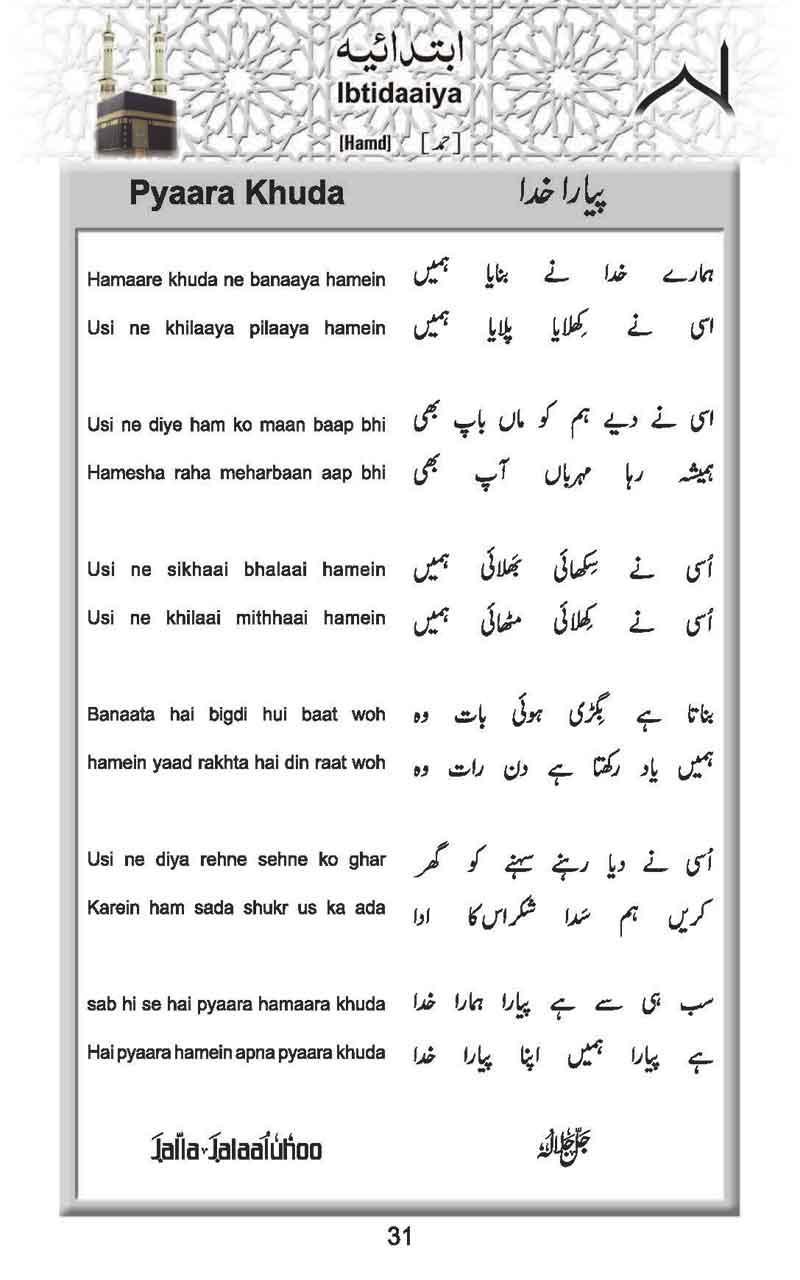 ابتدائیہ
Ibtidaaiya
[Hamd] [حمد]
Pyaara Khuda پیارا خدا
Hamaare khuda ne banaaya hamein ہمارے خدا نے بنایا ہمیں
Usi ne khilaaya pilaaya hamein اسی نے کِھلایا پلایا ہمیں
Usi ne diye ham ko maan baap bhi اسی نے دیے ہم کو ماں باپ بھی
Hamesha raha meharbaan aap bhi ہمیشہ رہا مہرباں آپ بھی
Usi ne sikhaai bhalaai hamein اُسی نے سِکھائی بَھلائی ہمیں
Usi ne khilaai mithhaai hamein اُسی نے کِھلائی مٹھائی ہمیں
Banaata hai bigdi hui baat woh بناتا ہے بِگڑی ہوئی بات وہ
hamein yaad rakhta hai din raat woh ہمیں یاد رکھتا ہے دن رات وہ
Usi ne diya rehne sehne ko ghar اُسی نے دیا رہنے سہنے کو گھر
Karein ham sada shukr us ka ada کریں ہم سَدا شکر اس کا ادا
sab hi se hai pyaara hamaara khuda سب ہی سے ہے پیارا ہمارا خدا
Hai pyaara hamein apna pyaara khuda ہے پیارا ہمیں اپنا پیارا خدا
Jalla Jalaaluhoo جَلَّ جَلَالُہٗ
31